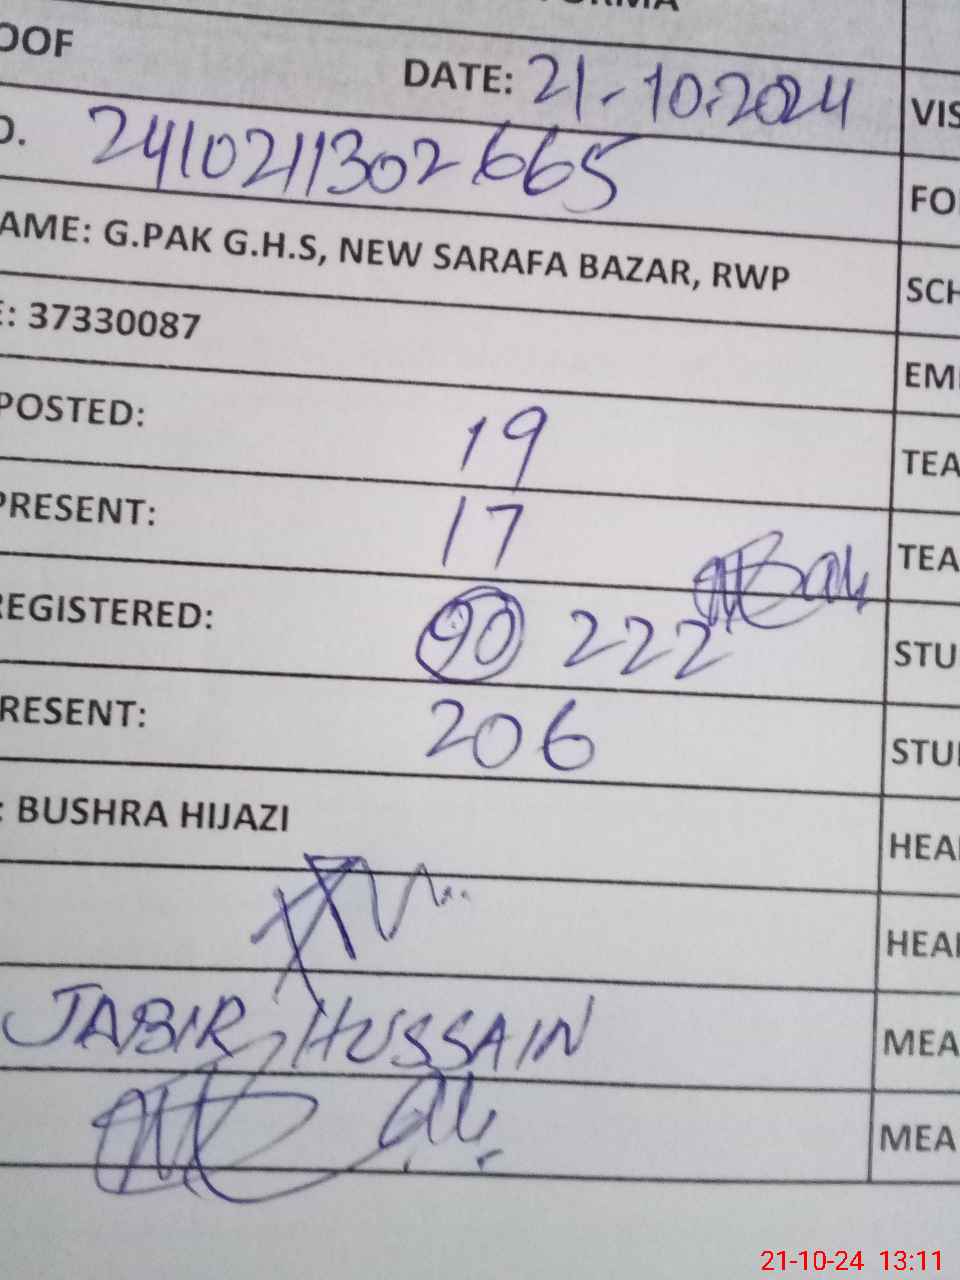 OOF
DATE: 21-10-2024
D. 2410211302665
AME: G.PAK G.H.S, NEW SARAFA BAZAR, RWP
E: 37330087
POSTED: 19
PRESENT: 17
REGISTERED: 90 222
RESENT: 206
: BUSHRA HIJAZI
JABIR HUSSAIN
VIS
FO
SCH
EMI
TEA
TEA
STU
STU
HEA
HEA
MEA
MEA
21-10-24 13:11